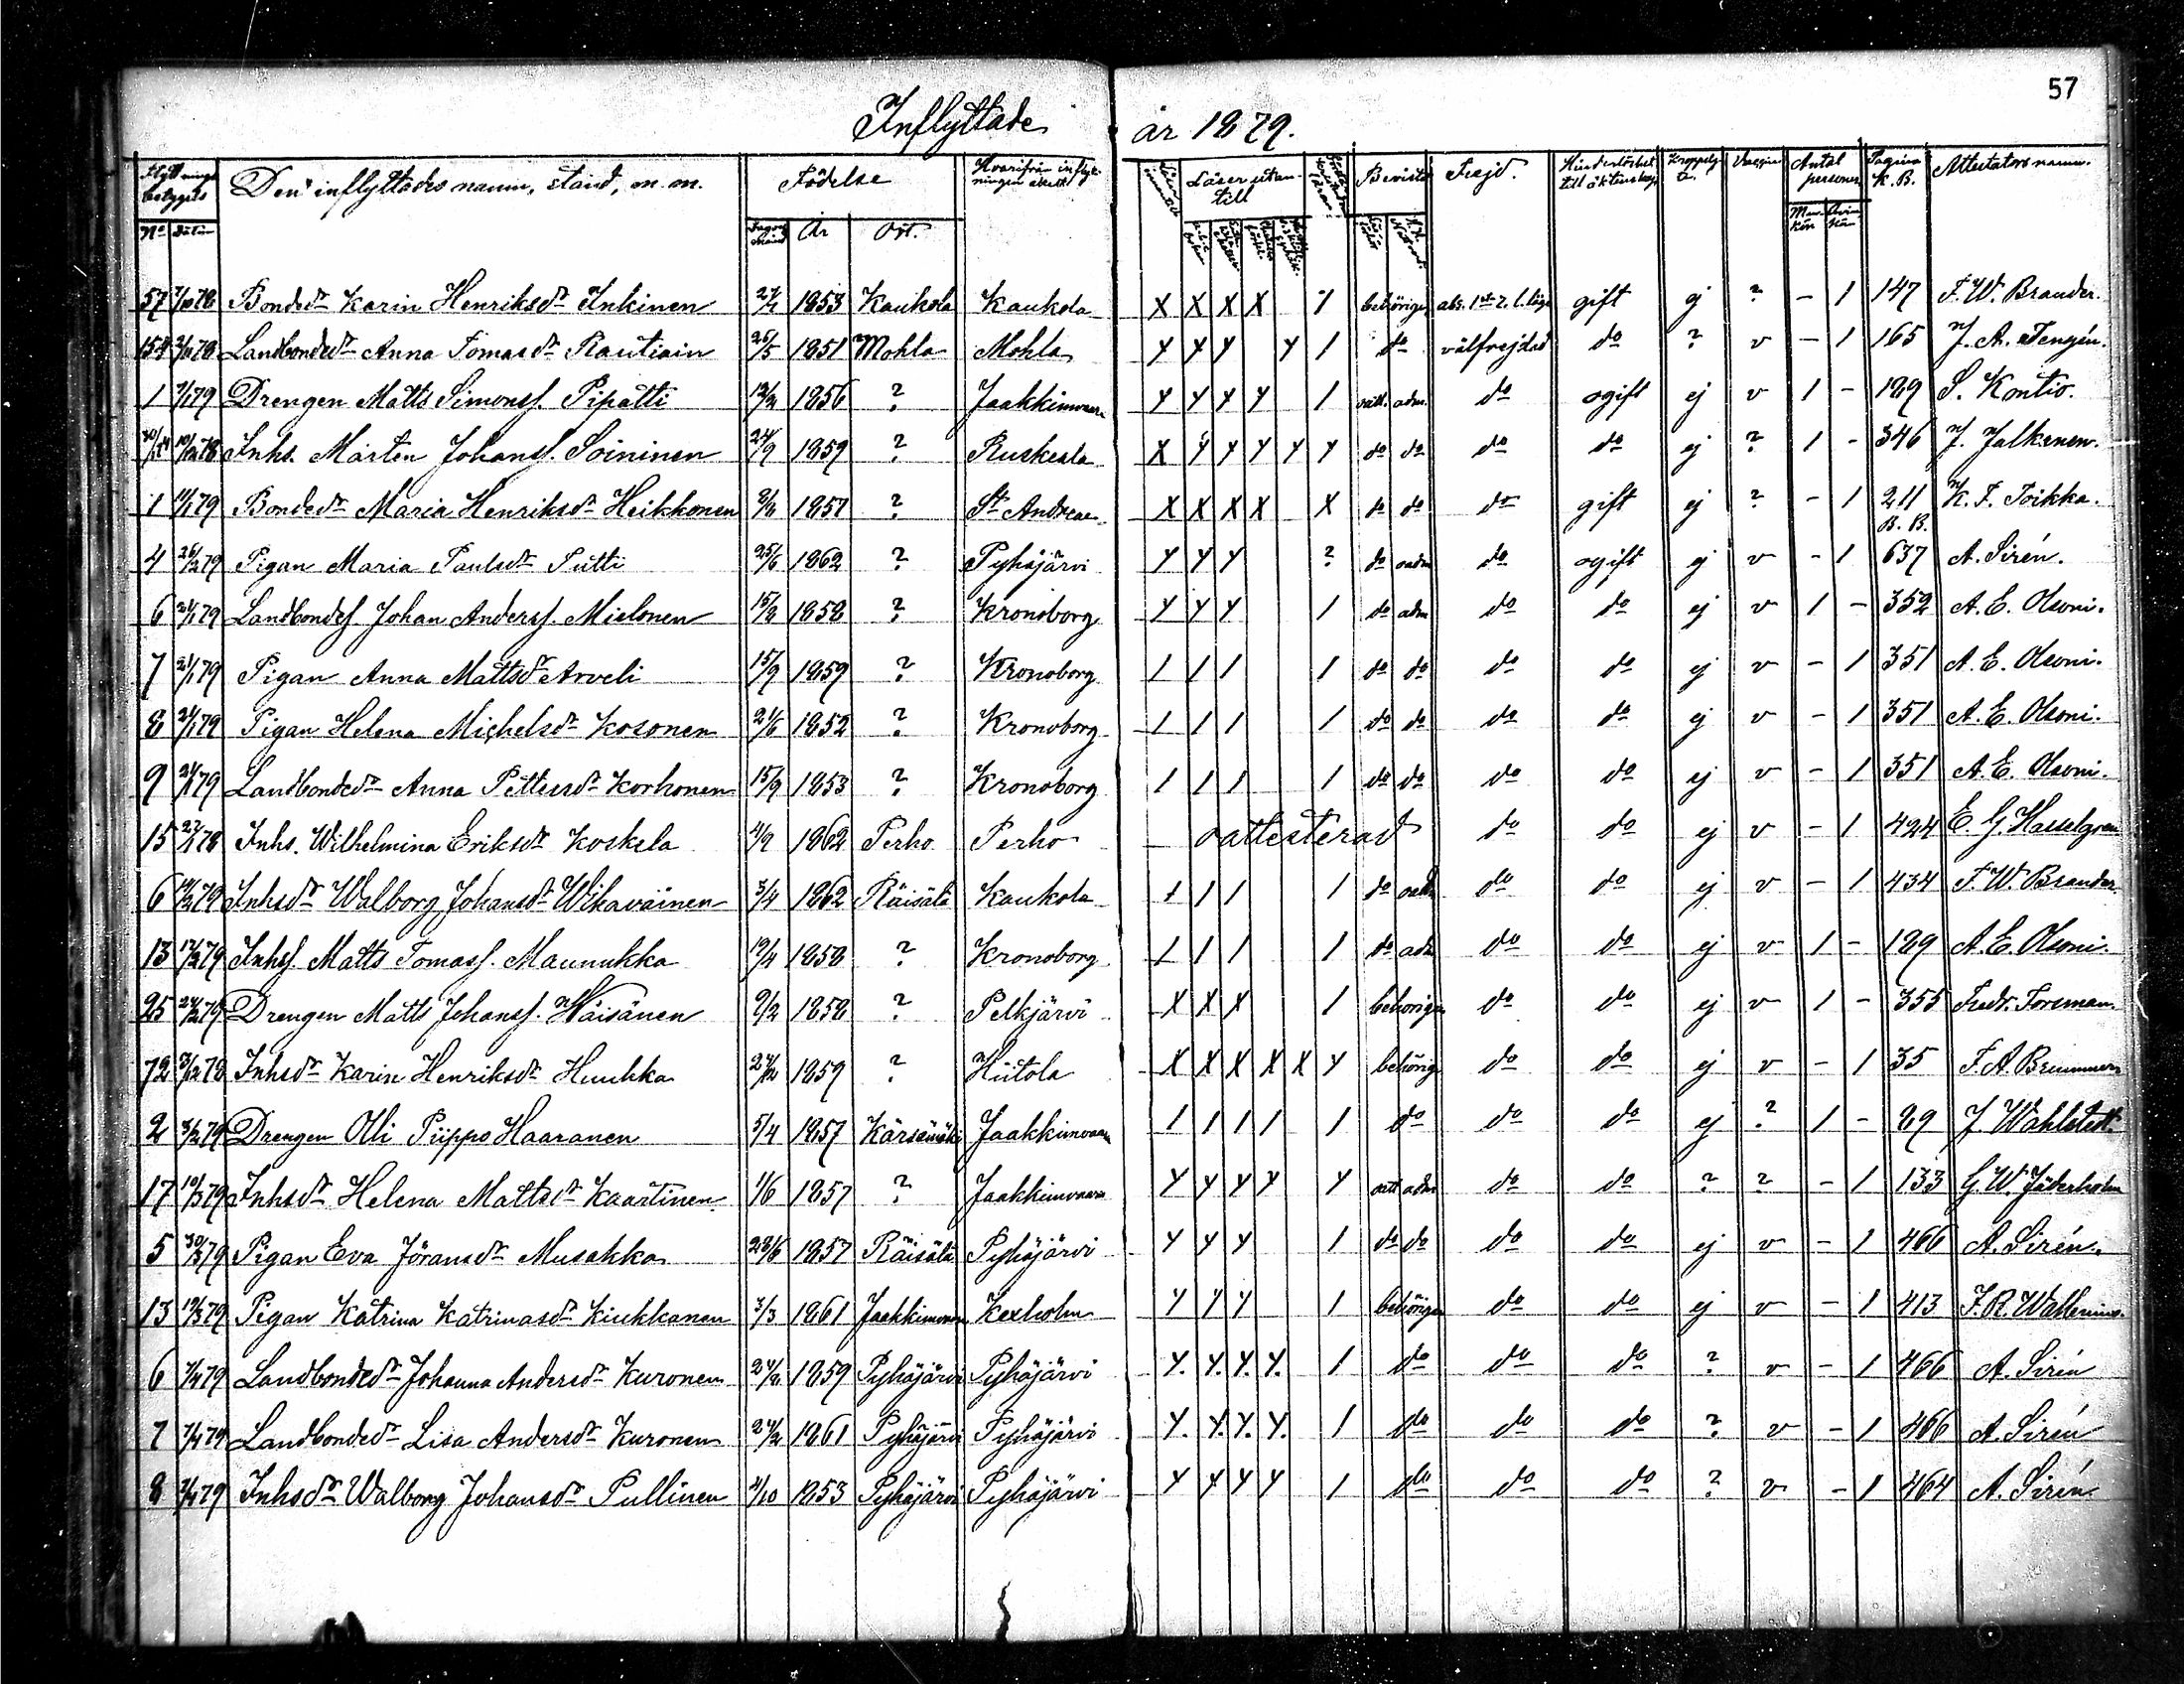 57
Inflyttade år 1879.
Den inflyttades namn, stånd, m. m. Födelse Läser utantill Bevistat Frejd. Hinderlöshet till äktenskap Antal personer Pagina K. B. Attestators namn.
No År Ort. Mankön Qvinkön
57 78 Bondedr Karin Henriksdr Inkinen 1853 Kaukola Kaukola X X X X 1 gift ej ? – 1 147 F. W. Brander.
78 Landbondedr Anna Tomasdr Rautiain 26/5 1851 Mohla Mohla Y Y Y Y 1 do välfrejdad do ? v – 1 165 J. A. Tengén.
1 79 Drengen Matts Simonss. Pipatti 1856 ? Jaakkimvaara Y Y Y Y 1 adm. do ogift ej v 1 – 189 S. Kontio.
78 Inhs. Mårten Johanss. Soininen 24/9 1859 ? Ruskeala X Y Y Y Y Y do do do do ej ? 1 – 346 J. Jalkanen.
1 79 Bondedr Maria Henriksdr Heikkonen 1857 ? St Andreae X X X X X do do do gift ej ? – 1 211 K. F. Toikka.
B. B.
4 79 Pigan Maria Paulsdr Putti 25/6 1862 ? Pyhäjärvi Y Y Y ? do oadm do ogift ej v – 1 637 A. Sirén.
6 79 Landbondes. Johan Anderss. Mielonen 1858 ? Kronoborg Y Y Y 1 do adm do do ej v 1 – 352 A. E. Olsoni.
7 79 Pigan Anna Mattsdr Arveli 15/9 1859 ? Kronoborg 1 1 1 1 do do do do ej v – 1 351 A. E. Olsoni.
8 79 Pigan Helena Michelsdr Kosonen 21/6 1852 ? Kronoborg 1 1 1 1 do do do do ej v – 1 351 A. E. Olsoni.
9 79 Landbondedr Anna Pettersdr Korhonen 15/9 1853 ? Kronoborg 1 1 1 1 do do do do ej v – 1 351 A. E. Olsoni.
15 78 Inhs. Wilhelmina Eriksdr Koskela 1862 Perho Perho oattesterad do do ej v – 1 424 E. G. Hasselgren
6 79 Inhsdr Walborg Johansdr Wikaväinen 3/4 1862 Räisälä Kaukola 1 1 1 1 do oadm do do ej v – 1 434 F. W. Brander.
13 79 Inhss. Matts Tomass. Maunukka 19/4 1858 ? Kronoborg 1 1 1 1 do adm do do ej v 1 – 189 A. E. Olsoni.
25 79 Drengen Matts Johanss. Häisänen 9/2 1858 ? Pelkjärvi X X X 1 behöriga do do ej v 1 – 355 Fredr. Forsman.
72 78 Inhsdr Karin Henriksdr Huuhka 1859 ? Hiitola X X X X X Y behörig do do ej v – 1 35 F. A. Brummer
2 79 Drengen Olli Piippo Haaranen 5/4 1857 Kärsämäki Jaakkimvaara 1 1 1 1 1 do do do ej ? 1 – 29 J. Wahlstedt.
17 79 Inhsdr Helena Mattsdr Kaartinen 1/6 1857 ? Jaakkimvaara Y Y Y Y Y adm do do ? ? – 1 133 G. W.
5 30/3 79 Pigan Eva Göransdr Musakka 28/6 1857 Räisälä Pyhäjärvi Y Y Y 1 do do do do ej v – 1 466 A. Sirén.
13 79 Pigan Katrina Katrinasdr Kiukkanen 3/3 1861 Jaakkimvaara Kexholm Y Y Y 1 behöriga do do ej v – 1 413 F. R. Wallenius.
6 7/4 79 Landbondedr Johanna Andersdr Kuronen 1859 Pyhäjärvi Pyhäjärvi Y. Y. Y. Y. 1 do do do ? v – 1 466 A. Sirén
7 7/4 79 Landbondedr Lisa Andersdr Kuronen 1861 Pyhäjärvi Pyhäjärvi Y. Y. Y. Y. 1 do do do ? v – 1 466 A. Sirén
8 7/4 79 Inhsdr Walborg Johansdr Pullinen 1853 Pyhäjärvi Pyhäjärvi Y Y Y Y 1 do do do ? v – 1 464 A. Sirén